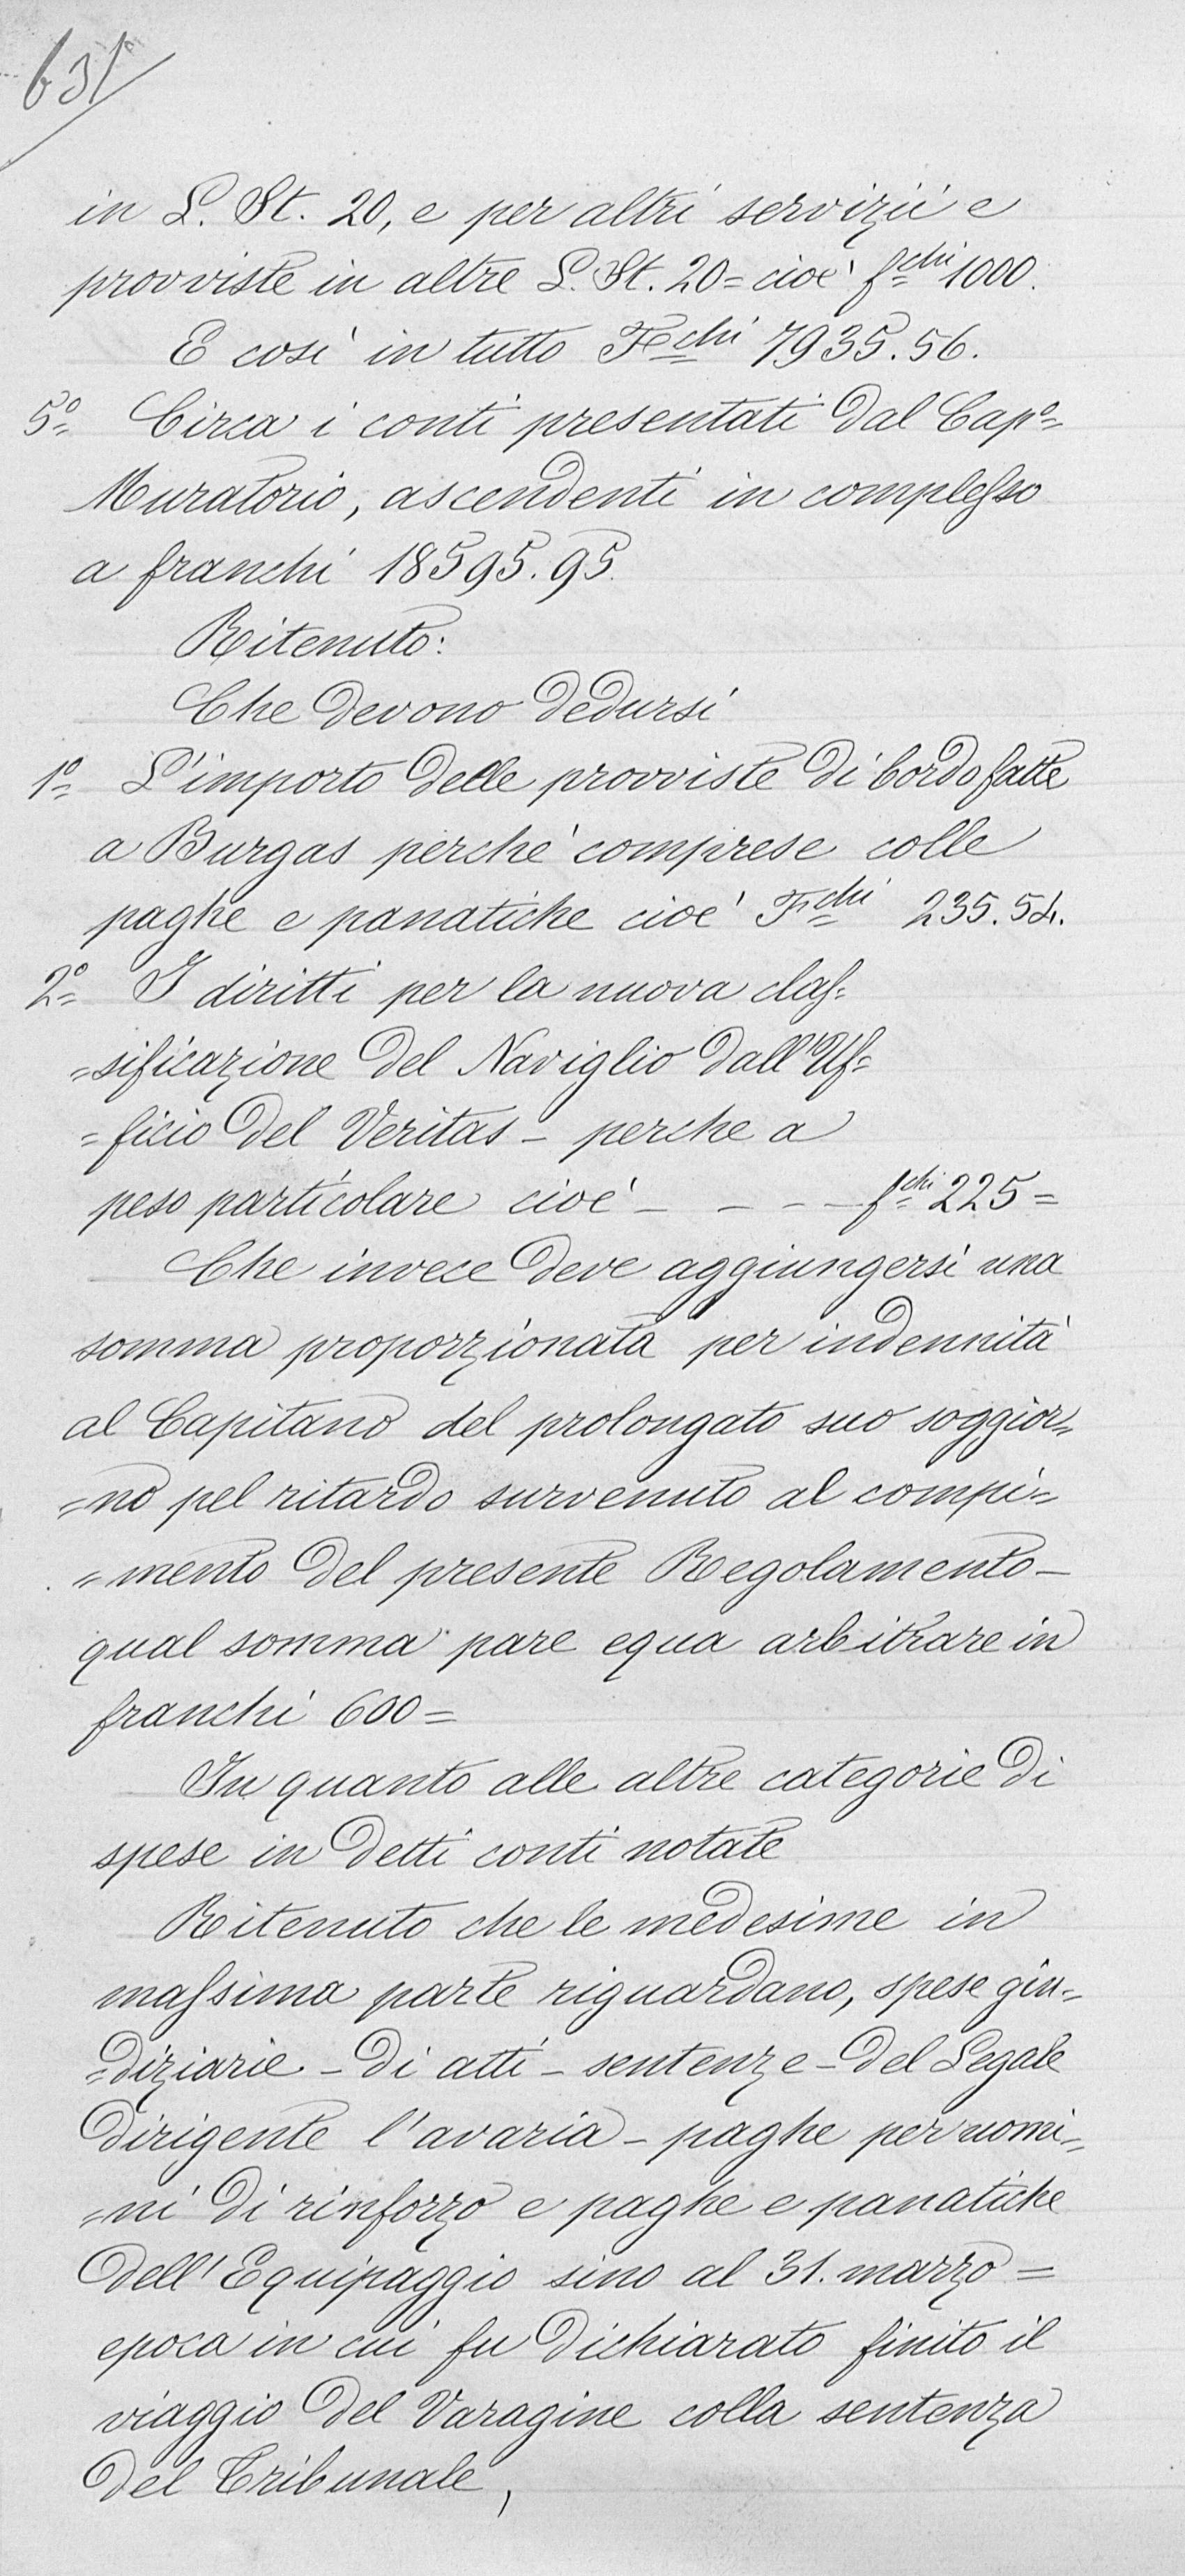 631
in L. St. 20, e per altri servizii e
provviste in altre L. St. 20= cioè fchi 1000.
E così in tutto Fchi 7935.56.
5º= Circa i conti presentati dal Capº=
Muratorio, ascendenti in complesso
a franchi 18595.95.
Ritenuto:
Che devono dedursi
1º= L'importo delle provviste di bordo fatte
a Burgas perchè comprese colle
paghe e panatiche cioè Fchi 235.54.
2º= I diritti per la nuova clas=
=sificazione del Naviglio dall'Uf=
=ficio del Veritas - perche a
peso particolare cioè - - - - fchi 225=
Che invece deve aggiungersi una
somma proporzionata per indennità
al Capitano del prolongato suo soggior=
=no pel ritardo survenuto al compi=
=mento del presente Regolamento -
qual somma pare equa arbitrare in
franchi 600=
In quanto alle altre categorie di
spese in detti conti notate
Ritenuto che le medesime in
massima parte riguardano, spese giu=
=diziarie - di atti - sentenze - del Legale
dirigente l'avaria - paghe per uomi=
=ni di rinforzo e paghe e panatiche
dell'Equipaggio sino al 31. marzo =
epoca in cui fu dichiarato finito il
viaggio del Varagine colla sentenza
del Tribunale,